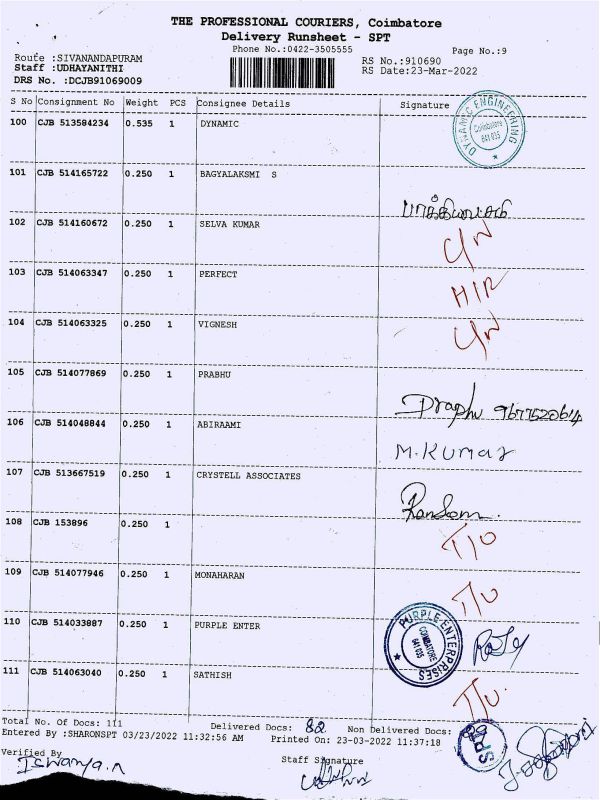 THE PROFESSIONAL COURIERS, Coimbatore
Delivery Runsheet - SPT
Phone No.:0422-3505555
Page No.:9
Route :SIVANANDAPURAM
RS No.:910690
Staff :UDHAYANITHI
RS Date:23-Mar-2022
DRS No. :DCJB91069009
S No Consignment No Weight PCS Consignee Details Signature
100 CJB 513584234 0.535 1 DYNAMIC
DYNAMIC ENGINEERING Coimbatore 641 035
101 CJB 514165722 0.250 1 BAGYALAKSMI S
102 CJB 514160672 0.250 1 SELVA KUMAR C/N
103 CJB 514063347 0.250 1 PERFECT H/R
104 CJB 514063325 0.250 1 VIGNESH C/N
105 CJB 514077869 0.250 1 PRABHU 9677520614
106 CJB 514048844 0.250 1 ABIRAAMI M.Kumar
107 CJB 513667519 0.250 1 CRYSTELL ASSOCIATES
108 CJB 153896 0.250 1 T/O
109 CJB 514077946 0.250 1 MONAHARAN T/O
110 CJB 514033887 0.250 1 PURPLE ENTER
PURPLE ENTERPRISES COIMBATORE 641 035
111 CJB 514063040 0.250 1 SATHISH T/O
Total No. Of Docs: 111 Delivered Docs: 82 Non Delivered Docs:
Entered By :SHARONSPT 03/23/2022 11:32:56 AM Printed On: 23-03-2022 11:37:18
SPS
Verified By
Staff Signature